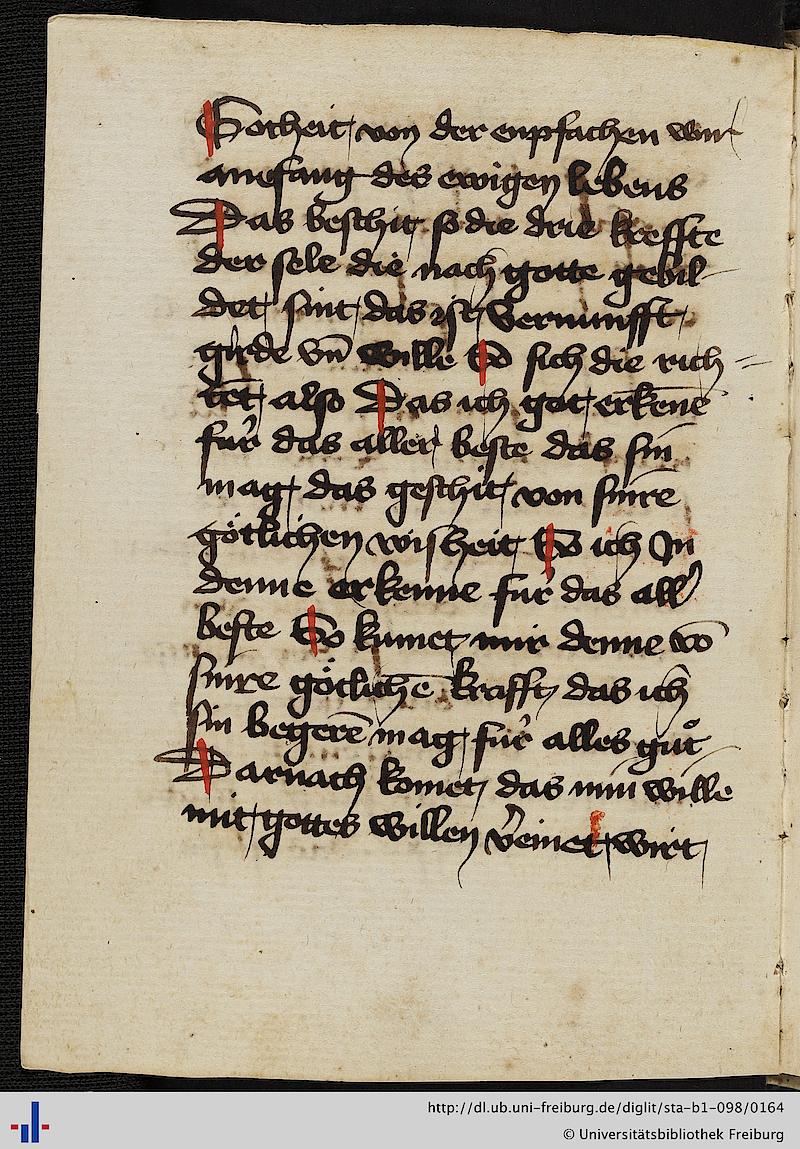 Gotheit von der enpfachen wir
anefang des ewigen lebens
Das beschit so die drie kreffte
der sele die nach gotte gebil
det sint das ist vernunfft
girde vn̄ wille So sich die rich=
tēt also Das ich got erkēne
fúr das aller beste das sin
mag das geschit von sinre
gőtlichen wisheit So ich In
denne erkenne fúr das all'
beste So kumet mir denne vō
sinre gőtlichē krafft das ich
sin begerē mag fúr alles gůt
Darnach komet das min wille
mit gottes willen v'einet wirt
http://dl.ub.uni-freiburg.de/diglit/sta-b1-098/0164
© Universitätsbibliothek Freiburg